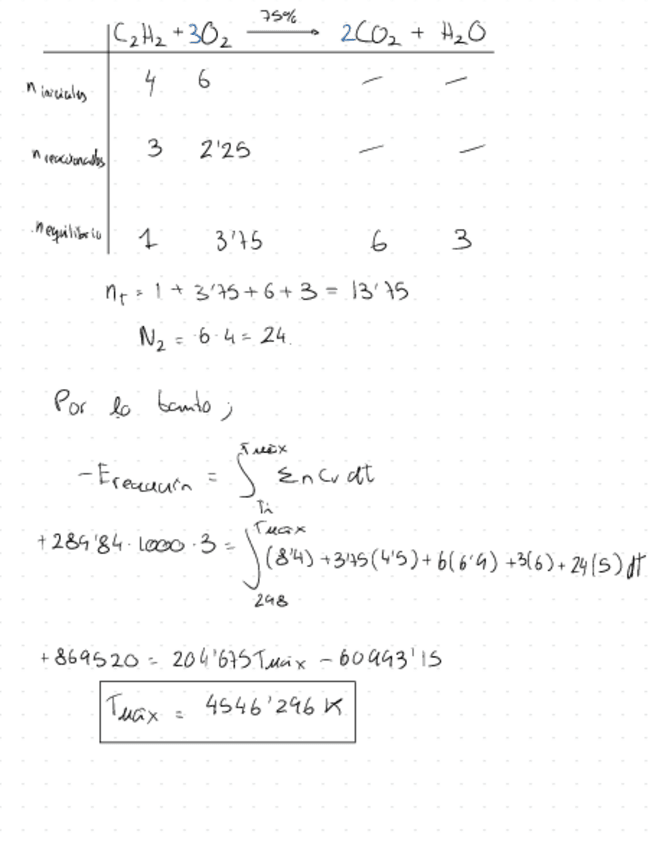 75%
C₂H₂ + 3O₂ → 2CO₂ + H₂O
n iniciales 4 6 — —
n reaccionados 3 2'25 — —
n equilibrio 1 3'75 6 3
nₜ = 1 + 3'75 + 6 + 3 = 13'75
N₂ = 6·4 = 24
Por lo tanto;
-Ereacción = ∫ Tmáx Ti ΣnCv dt
+289'84·1000·3 = ∫ Tmáx 298 (8'4) + 3'75(4'5) + 6(6'9) + 3(6) + 24(5) dt
+869520 = 204'675Tmáx - 60993'15
Tmáx = 4546'296 K